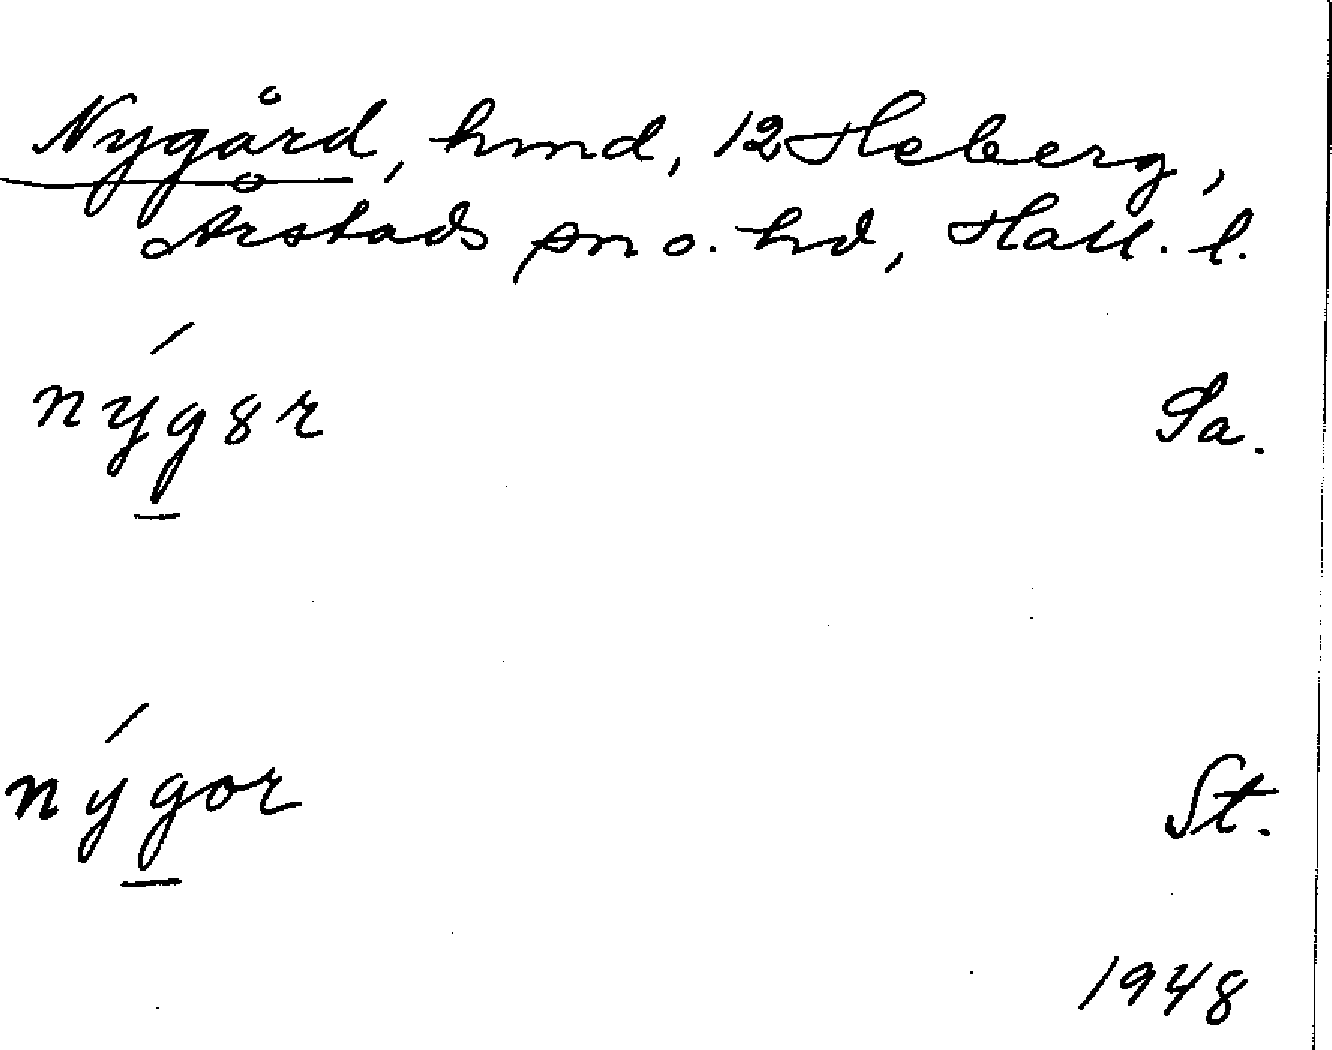 Nygård, hmd, 12 Heberg,
Årstads sn o. hd, Hall. l.
nýg8r Sa.
nýgor St.
1948